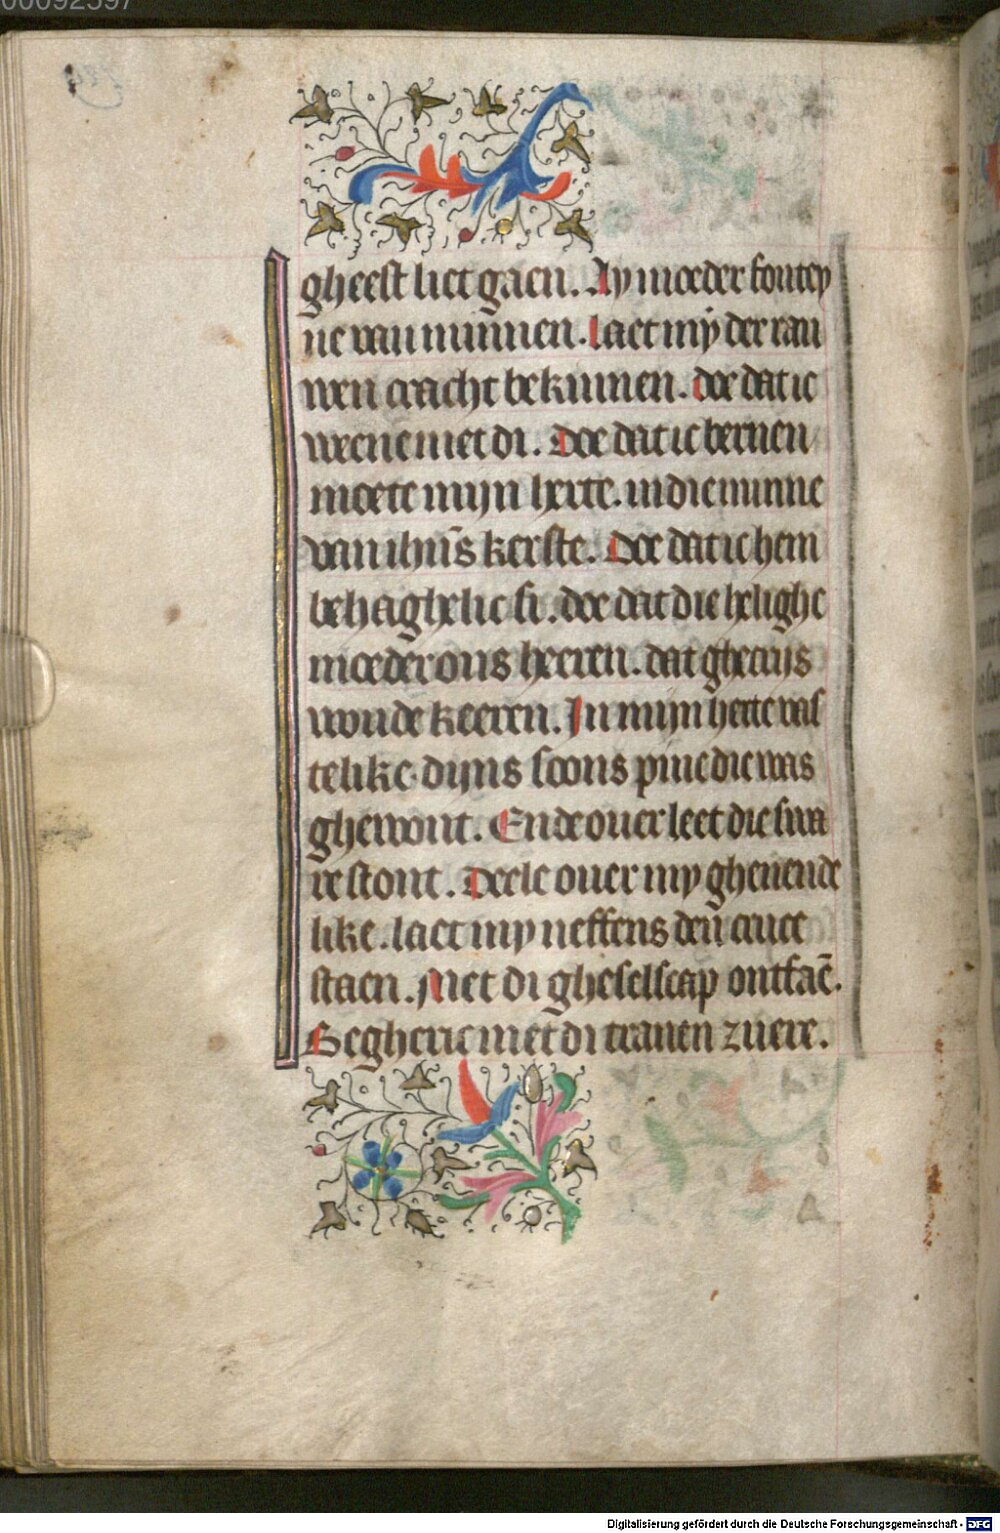 00092597
gheest liet gaen. Ay moeder fontey
ne van minnen. Laet my der rau
wen cracht bekinnen. doe dat ic
weene met di. Doe dat ic bernen
moete mijn herte. in die minne
van ihu̅s kerste. Doe dat ic hem
behaghelic si. doe dat die helighe
moeder ons heeren. dat ghecruys
wonde keeren. In mijn herte vas
telike. dijns soons pine die was
ghewont. Ende ouer leet die swa
re stont. Deele ouer my gheuende
like. laet my neffens den̅ cruce
staen. Met di gheselscap ontfae̅.
Begheric met di tranen zuere.
Digitalisierung gefördert durch die Deutsche Forschungsgemeinschaft - DFG